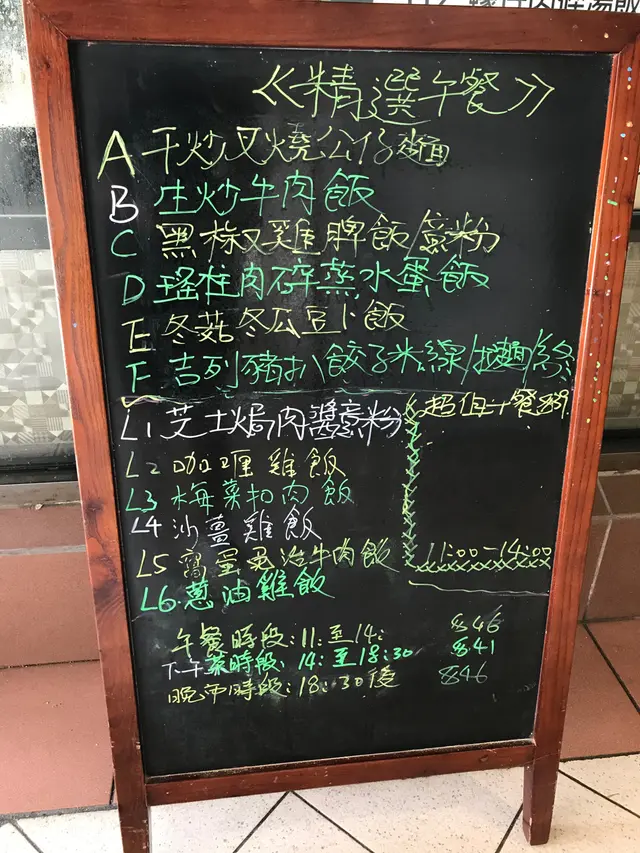 《精選午餐》
A 干炒叉燒公仔麵
B 生炒牛肉飯
C 黑椒雞脾飯/意粉
D 瑤柱肉碎蒸水蛋飯
E 冬菇冬瓜豆卜飯
F 吉列豬扒餃子米線/
L1 芝士焗肉醬意粉
超值
L2 咖喱雞飯
L3 梅菜扣肉飯
L4 沙薑雞飯
L5 窩蛋免治牛肉飯
11:00-14:00
L6.蔥油雞飯
午餐時段:11:至14: 846
下午茶時段:14:至18:30 841
晚市時段:18:30後 846